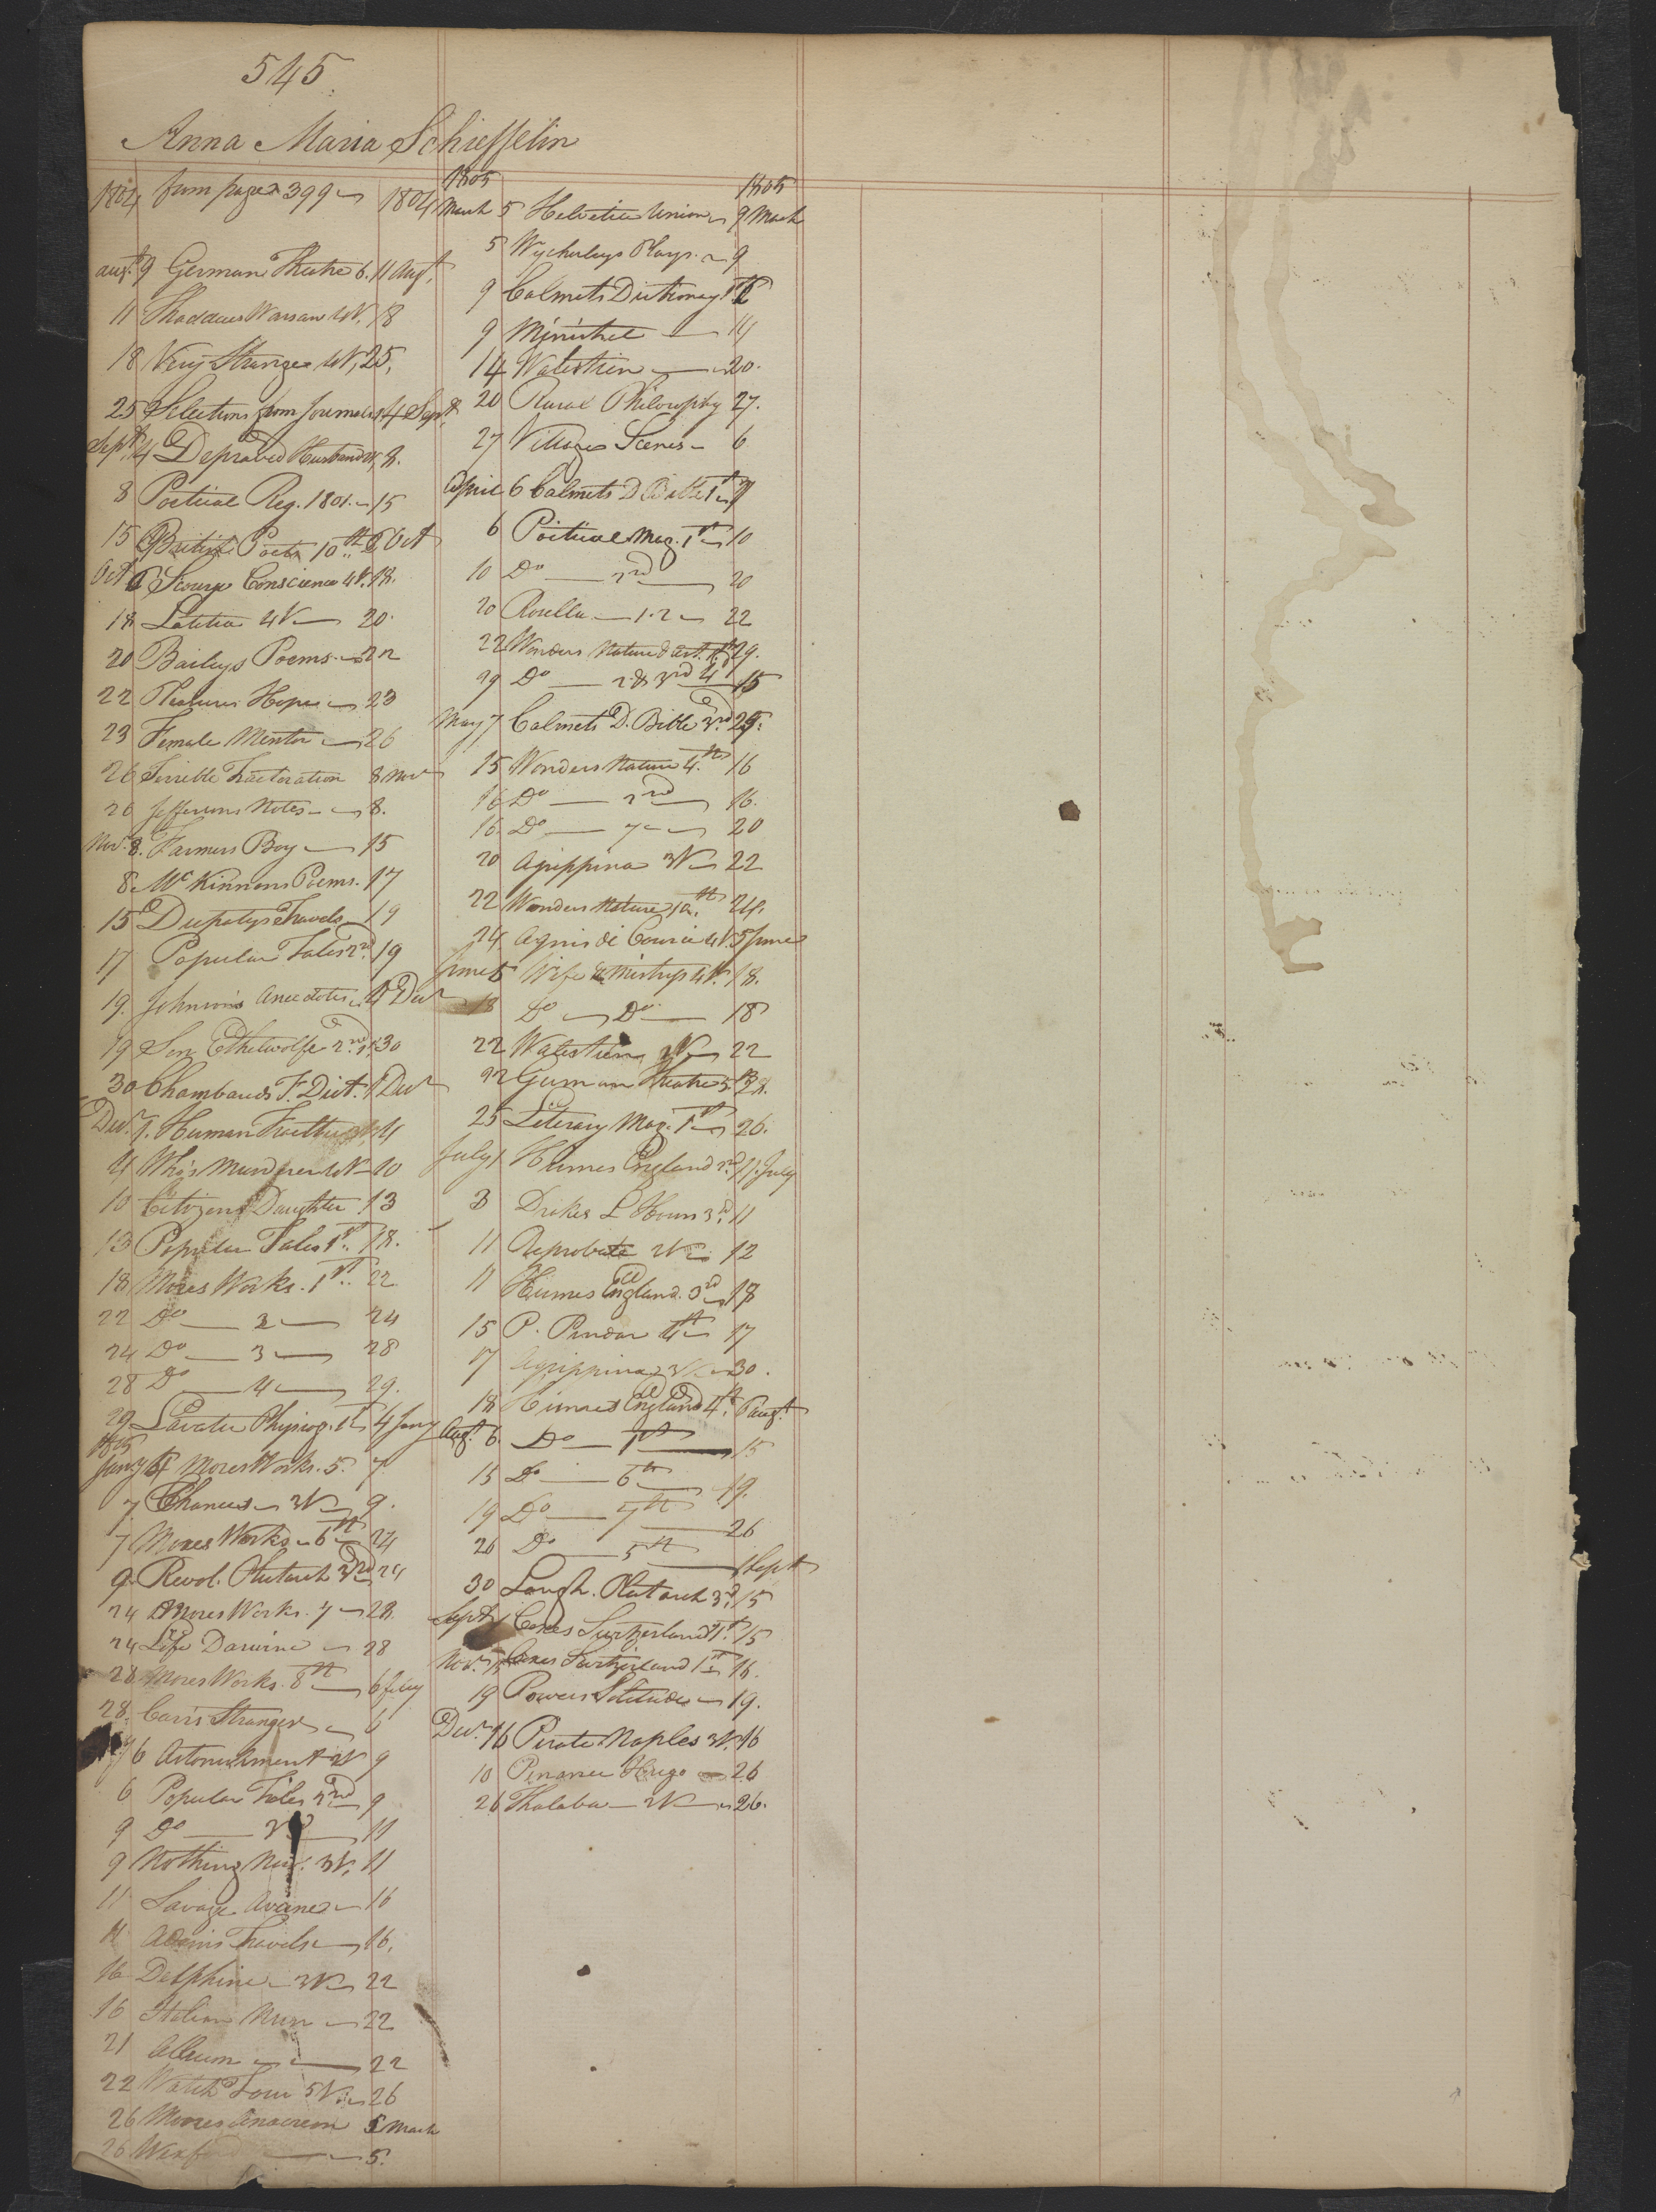 545
Anna Maria Schieffelin
1804 from page 399 1804
Augt. 9 German Theatre 6. 11 Augt.
11 Thaddeus Warsaw 4V. 18
18 Very Strange 4V, 25,
25 Selections from Journals, 4 Sept.
Sept. 4 Depraved Husband 8.
8 Poetical Reg. 1801. 15
15 British Poets 10th 6 Oct
Oct 6 Scourge Conscience 4V. 18.
18 Letitia 4V 20.
20 Baileys Poems. 22
22 Pleasures Hope 23
23 Female Mentor 26
26 Terrible Tractoration 8 Nov
26 Jeffersons Notes 8.
Nov. 8. Farmers Boy 15
8 McKinnens Poems. 17
15 Travels 19
17 Popular Tales 2nd 19
19. Johnson's Anecdotes 4 Decr
19 Son Ethelwolfe 30
30 Chambauds F. Dict. 1 Decr
Decr. 1. Human 4
4 Who's Murderer 4V 10
10 Citizens Daughter 13
13 Popular Tales 1st. 18.
18 Mores Works. 1st. 22
22 Do 2 24
24 Do 3 28
28 Do 4 29.
29 Lavater Physiog. 1st 4 Jany
1805
Jany 4 Mores Works. 5. 7
7 Chances 3V 9.
7 Mores Works 6th 24
9 Revol. Plutarch 3rd 24
24 Mores Works. 7 28.
24 Life Darwin 28
28 Mores Works. 8th 6 Feby
28. Stranger 6
6 Astonishment 2V 9
6 Popular Tales 9
9 Do 11
9 Nothing New. 3V. 11
11 Savage 16
11 Travels 16.
16 Delphine 3V 22
16 Italian Nun 22
21 Album 22
22 Watch Tower 5V. 26
26 Moores Anacreon 5 March
26 5.
1805 1805
March 5 Helvetic Union 9 March
5 Wycherleys Plays. 9
9 Calmets Dictionary 1st
9 Minstrel 14
14 Walstein 20.
20 Rural Philosophy 27.
27 Village Scenes 6
April 6 Calmets D Bible 1st
6 Poetical Mag. 1st 10
10 Do 2nd 20
20 Rosella 1.2 22
22 Wonders Nature & Art. 29.
29 Do 2 & 3rd 4 15
May 7 Calmets D. Bible 3rd 25.
15 Wonders Nature 4th 16
16 Do 16.
16 Do 7 20
20 Agrippina 3V 22
22 Wonders Nature 24.
24. Agnes di Courci 4V. 5 June
June 5 Wife & Mistress 4V. 18.
18 Do Do 18
22 Walstein 2V 22
22 German Theatre
25 Literary Mag. 1st 26.
July 1 Humes England 2nd. 11. July
3 Drakes L Hours 3d. 11
11 Reprobate 2V 12
11 Humes England. 3rd 18
15 P. Pindar 4th 17
17 Agrippina 3V. 30.
18 Humes England 4th. 6 Augt.
Augt. 6. Do 15
15 Do 6th 19.
19 Do 7th 26
26 Do 5th 1 Sept
30 Plutarch 3d. 15
Sept. 1 Coxes Switzerland 1st. 15
Nov. 15 Coxes Switzerland 1st 16.
19 Powers Solitude 19.
Decr. 16 Pirate Naples 3V. 16
10 Hugo 26
26 Thalaba 2V 26.